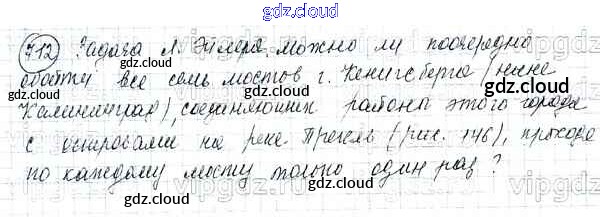 gdz.cloud
712 Задача Л. Эйлера. можно ли поочередно
обойти все семь мостов г. Кенигсберга (ныне
Калининград), соединяющих районы этого города
с островами на реке Прегель (рис. 146), проходя
по каждому мосту только один раз?
gdz.cloud
gdz.cloud
gdz.cloud
gdz.cloud
gdz.cloud